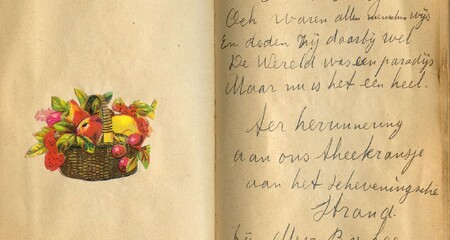 Och waren allen menschen wijs
En deden zij daarbij wel
De Wereld was een paradijs
Maar nu is het een heel.
Ter herinnering
aan ons theekransje
aan het scheveningsche
Strand.
bij